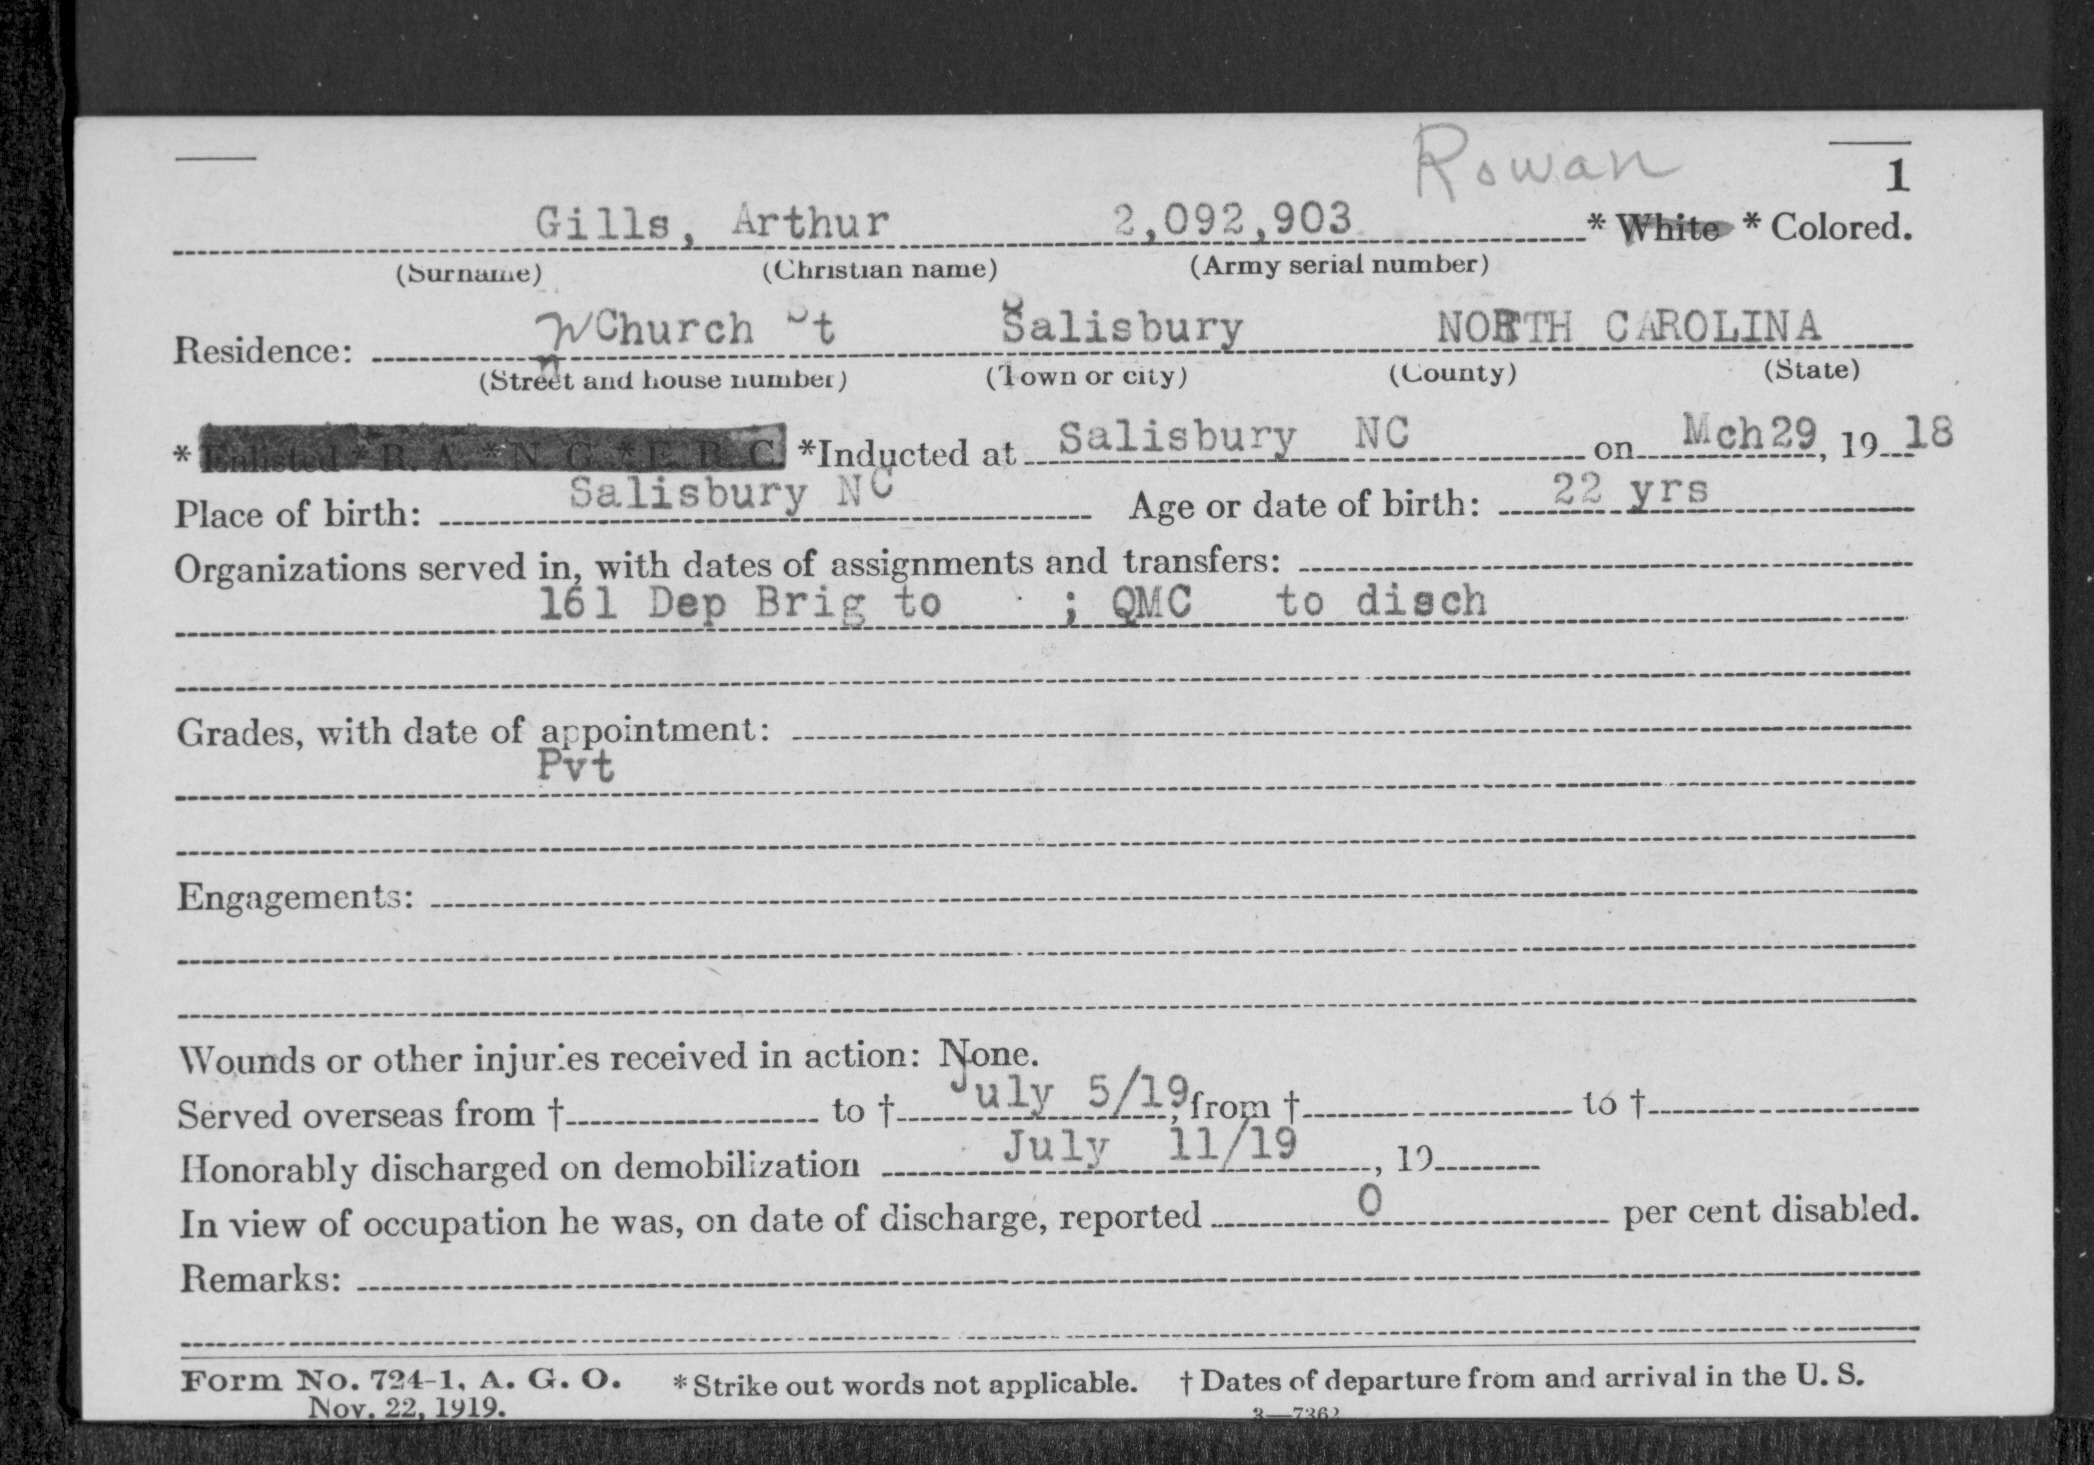 Rowan
1
Gills, Arthur 2,092,903 * White * Colored.
(Surname) (Christian name) (Army serial number)
Residence: N Church St Salisbury NORTH CAROLINA
(Street and house number) (Town or city) (County) (State)
* Enlisted * R. A. * N. G. * E. R. C. *Inducted at Salisbury NC on Mch29, 19 18
Place of birth: Salisbury NC Age or date of birth: 22 yrs
Organizations served in, with dates of assignments and transfers:
161 Dep Brig to ; QMC to disch
Grades, with date of appointment:
Pvt
Engagements:
Wounds or other injuries received in action: None.
Served overseas from † to † July 5/19, from † to †
Honorably discharged on demobilization July 11/19, 19
In view of occupation he was, on date of discharge, reported 0 per cent disabled.
Remarks:
Form No. 724-1, A. G. O. * Strike out words not applicable. † Dates of departure from and arrival in the U. S.
Nov. 22, 1919. 3—7362